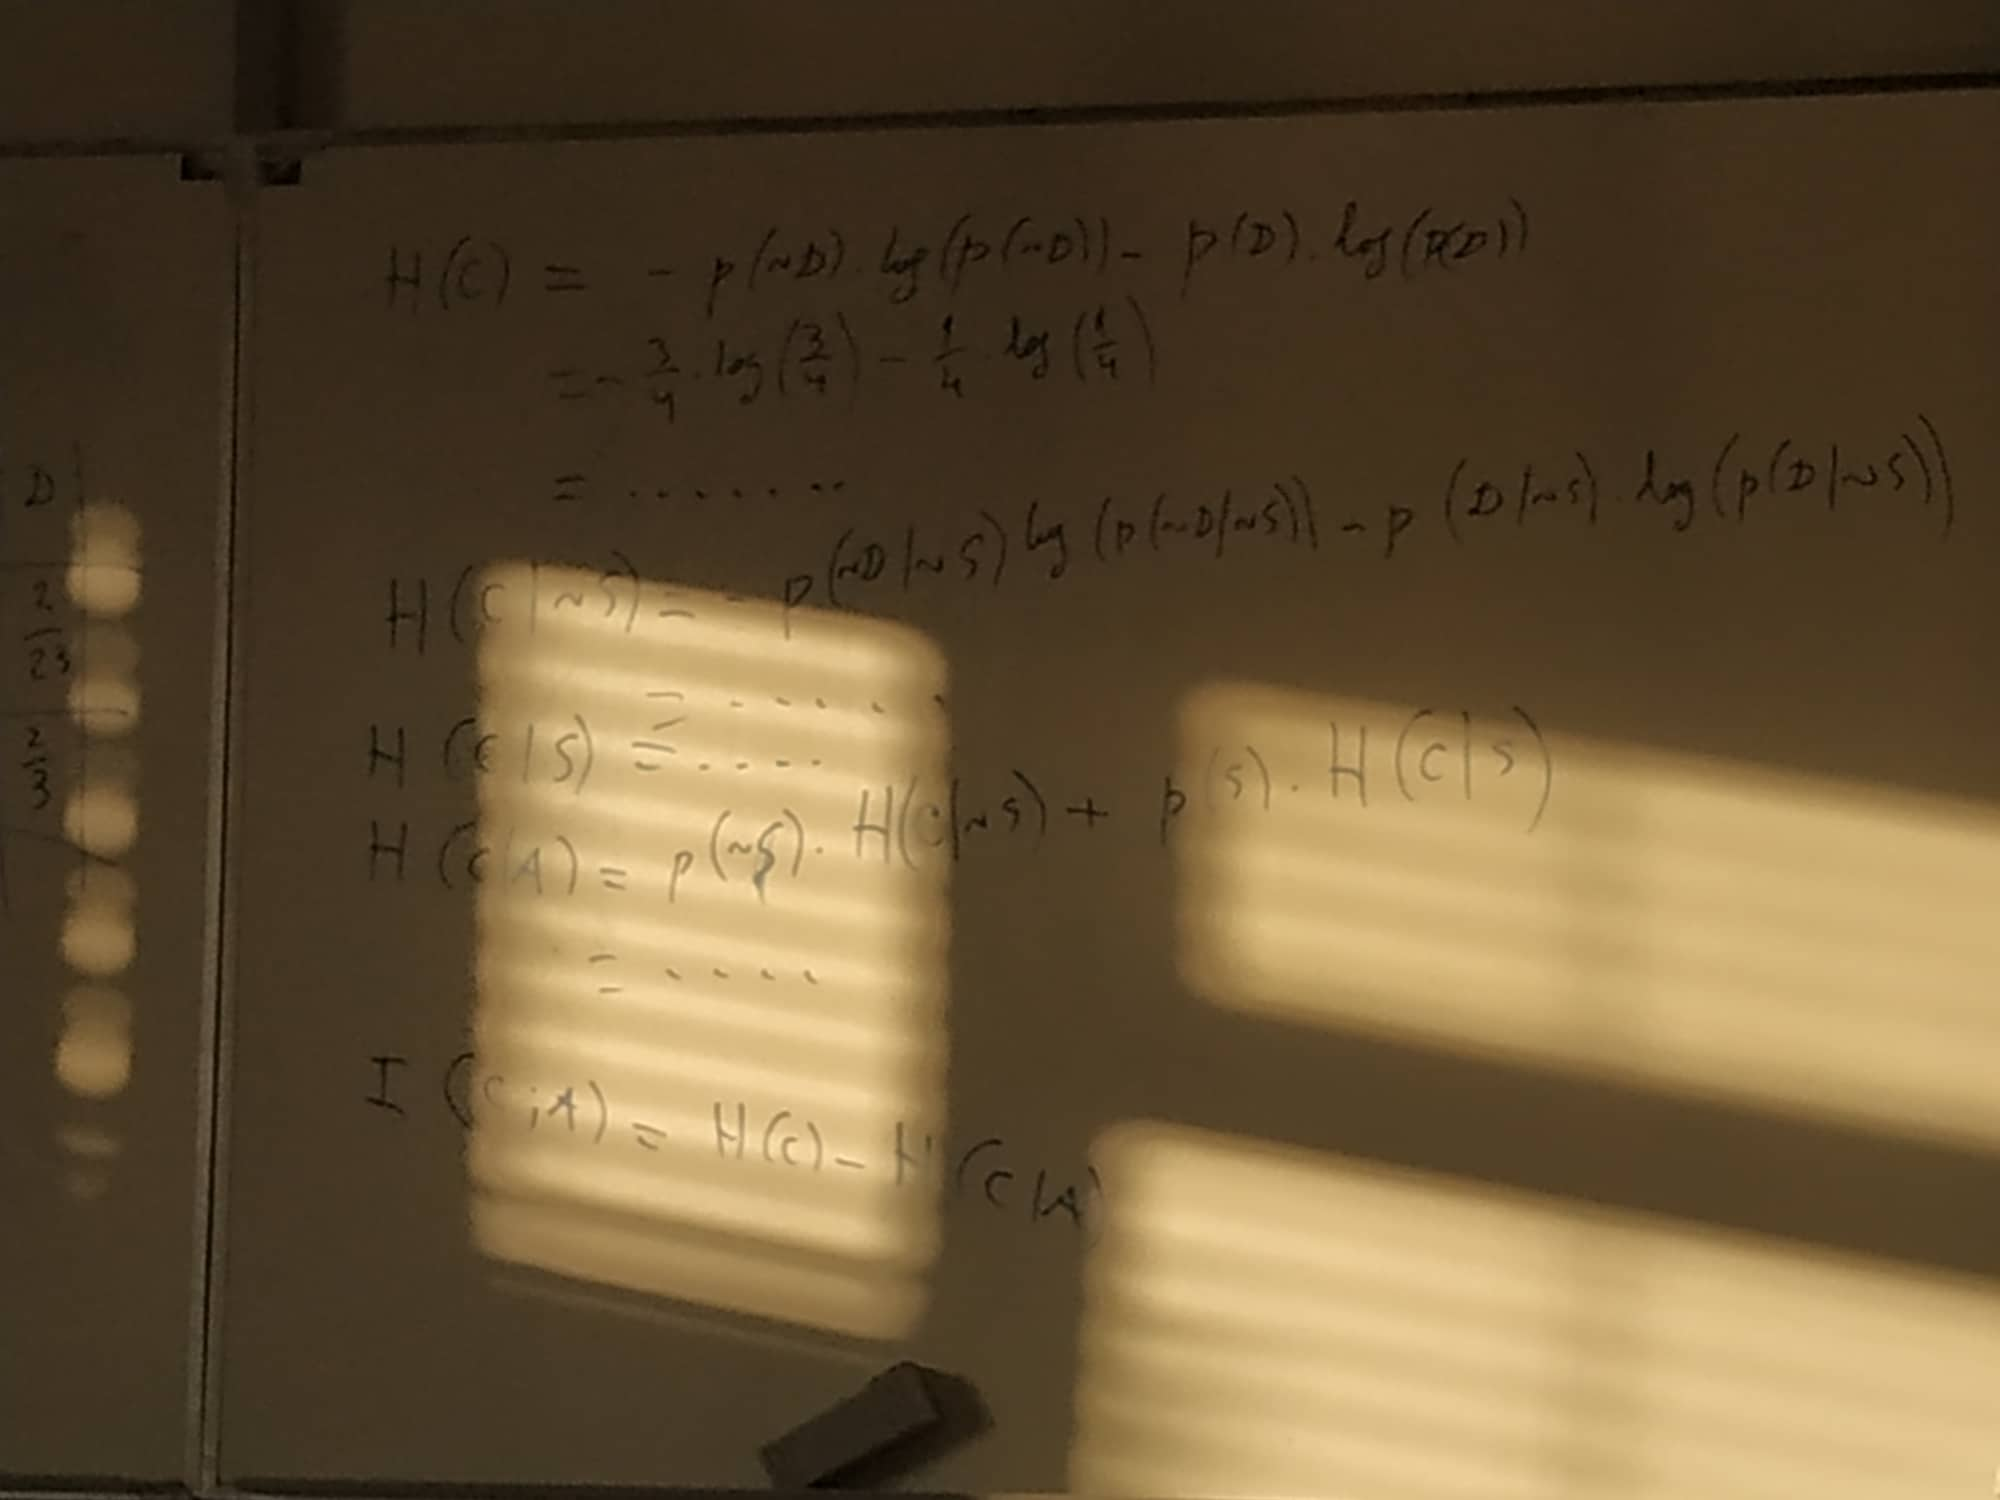 H(C) = - p(~D). log(p(~D)) - p(D). log(p(D))
= - 3/4 . log(3/4) - 1/4 . log(1/4)
= .......
H(C|~S) = - p(~D|~S) log(p(~D|~S)) - p(D|~S). log(p(D|~S))
= .....
H(C|S) = ....
H(C|A) = p(~S). H(C|~S) + p(S). H(C|S)
= ....
I(C;A) = H(C) - H(C|A)
D
2/3